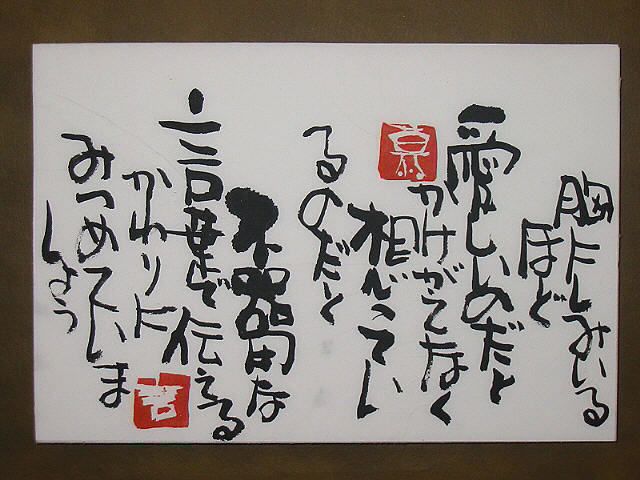 胸にしみいる
ほど
愛しいのだと
かけがえなく
想ってい
るのだと
不器用な
言葉で伝える
かわりに
みつめていま
しょう